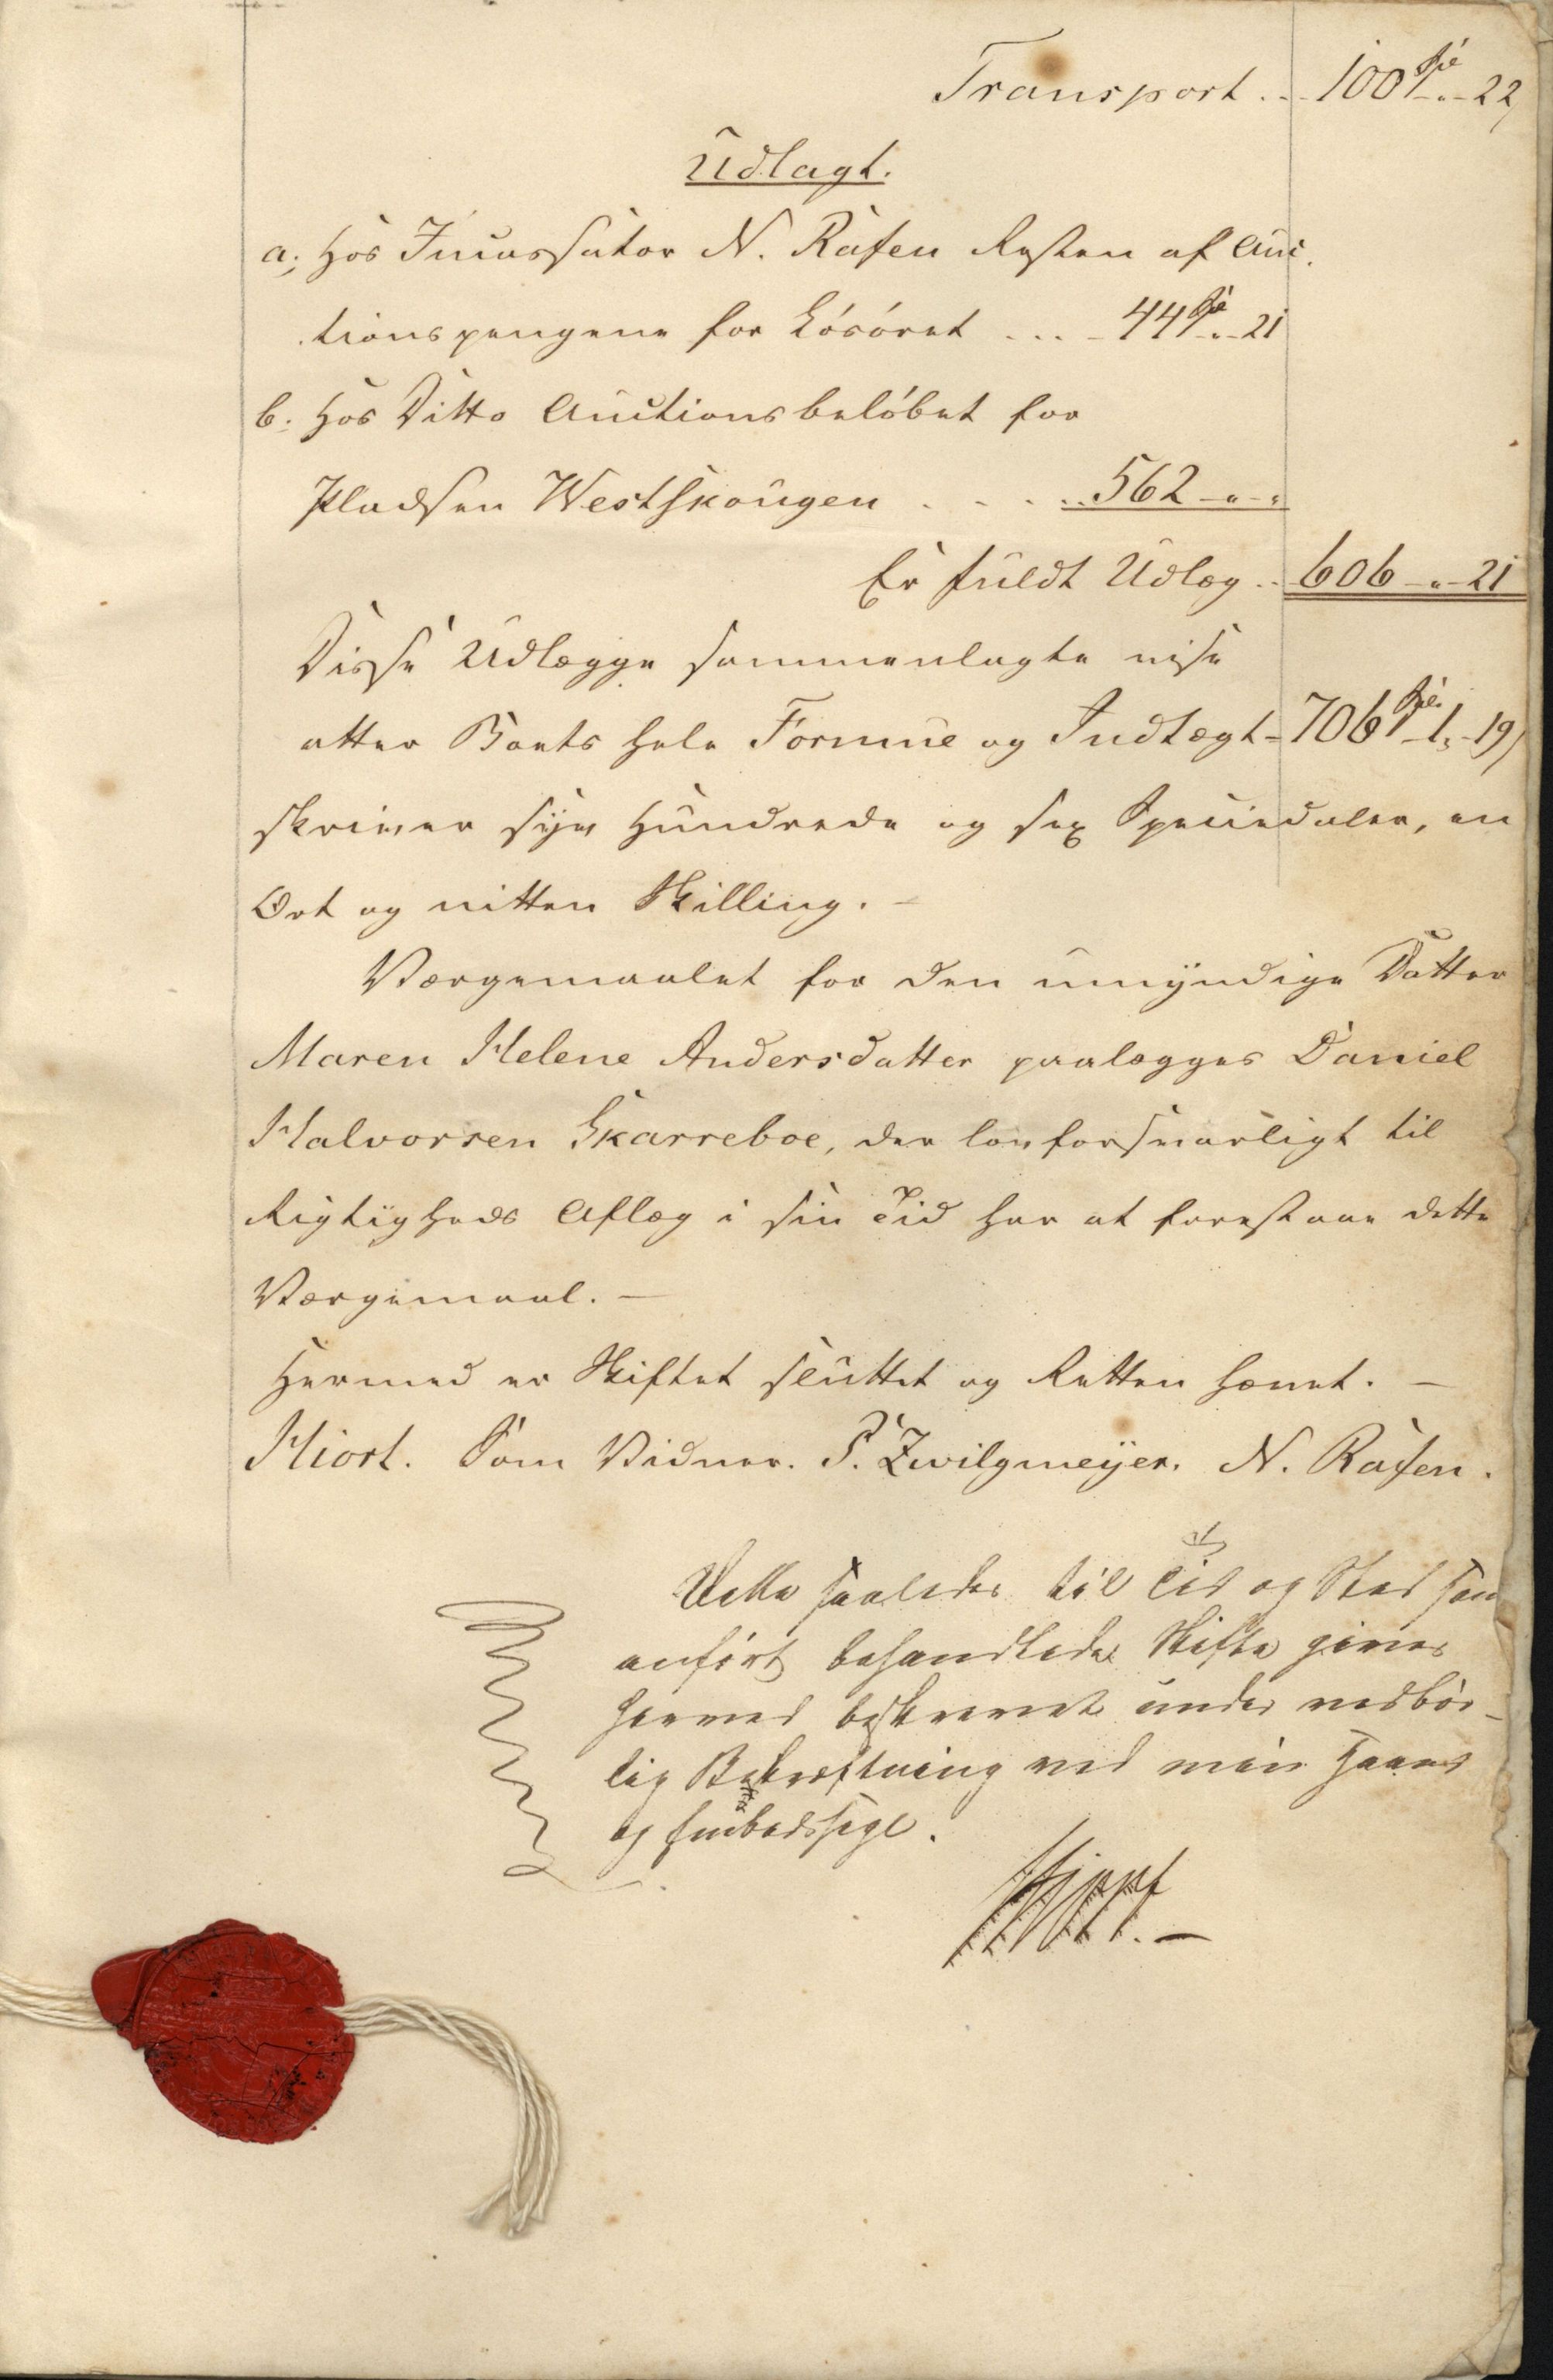 Transport... 100 Spd " - 22
Udlagt.
a; Hos Incassator N. Rafen Resten af Auc-
tionspengene for Løsøret .... 44 Spd " - 21
b. Hos Ditto Auctionsbeløbet for
Pladsen Westskougen . . . . . 562 - " - "
Er fuldt Udlæg .. 606 - " - 21
Disse Udlægge sammenlagte vise
atter Boets hele Formue og Indtægt = 706 Spd 1 - 19,
skriver syv Hundrede og sex Speciedaler, en
Ort og nitten Skilling. –
Værgemaalet for den umyndige Datter
Maren Helene Andersdatter paalægges Daniel
Halvorsen Skarreboe, der lovforsvarligt til
Rigtigheds Aflæg i sin Tid har at forestaae dette
Værgemaal. –
Hermed er Skiftet sluttet og Retten hævet. –
Hiort. Som Vidner. P. Zwilgmeÿer. N. Rafen.
Dette saaledes til Tid og Sted som
anført behandlede Skifte gives
herved beskrevet under vedbør-
lig Bekræftning ved min Haand
og Embedssegl.
Hjort. –